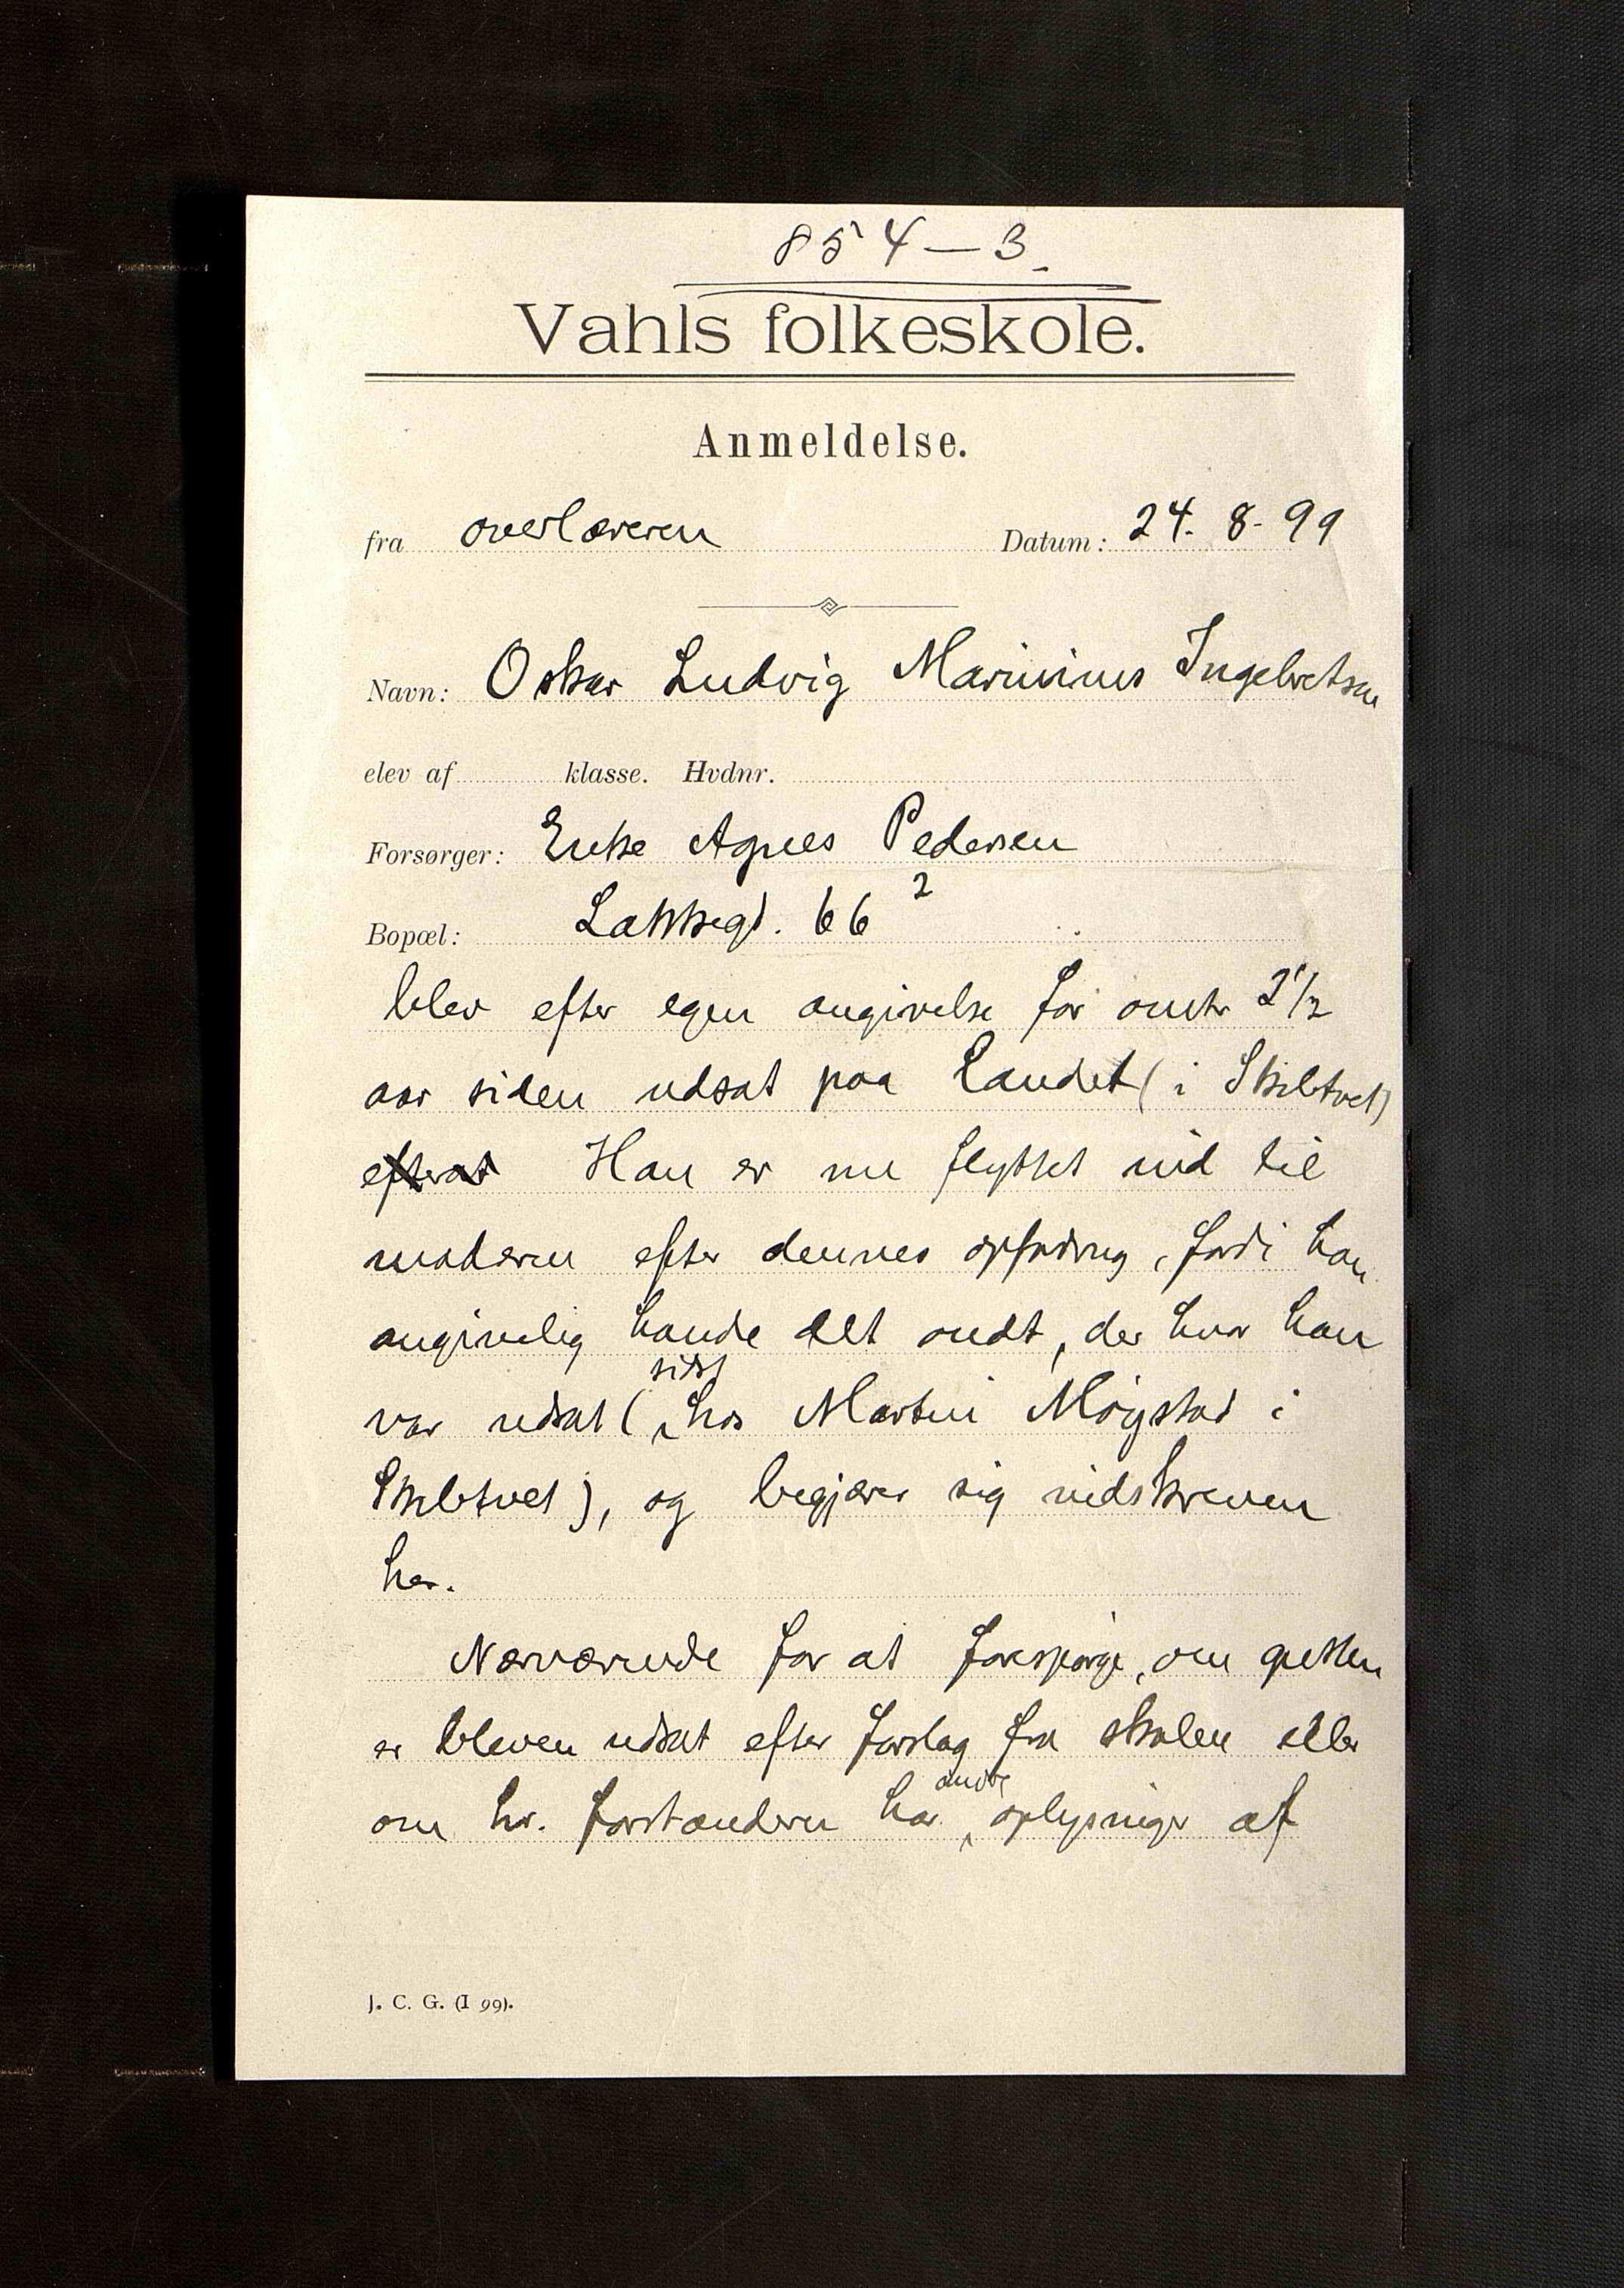 854-3.
Vahls folkeskole.
Anmeldelse.
fra overlæreren Datum: 24. 8. 99
Navn: Oskar Ludvig Marinius Ingebretsen
elev af klasse. Hvdnr.
Forsørger: Enke Agnes Pedersen
Bopæl: Lakkegd. 66²
blev efter egen angivelse for omtr 2 1/2
aar siden udsat paa landet (i Skibtvet)
efterat Han er nu flyttet ind til
moderen efter dennes opfordring, fordi han
angivelig havde det ondt, der hvor han
var udsat (sidst hos Martin Møgstad i
Skibtvet), og begjærer sig indskreven
her.
Nærværende for at forespørge, om gutten
er bleven udsat efter forslag fra skolen eller
om hr. forstanderen har andre oplysninger af
J. C. G. (I 99).